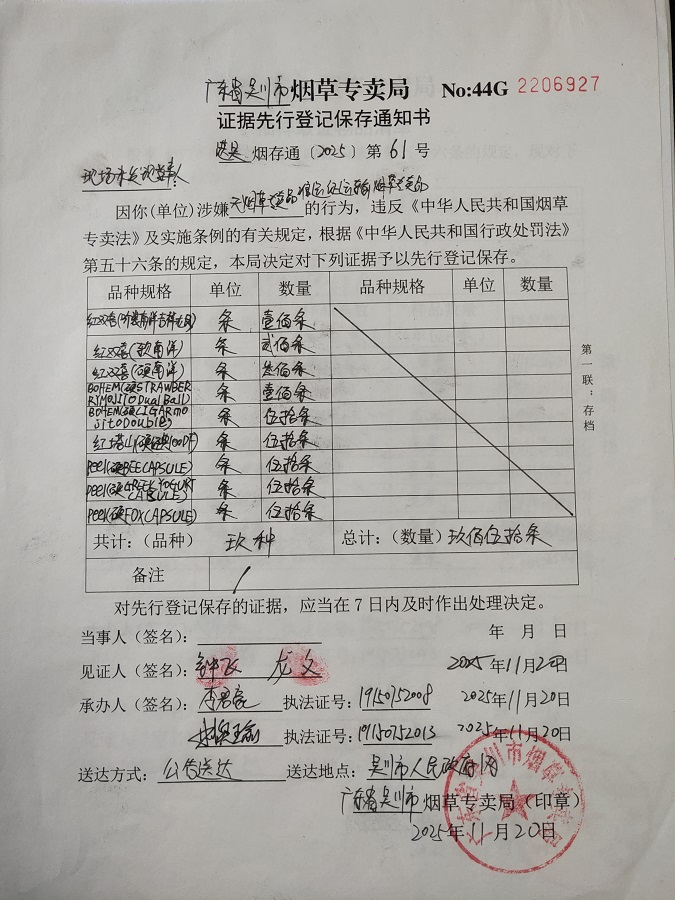 广东省吴川市烟草专卖局 No:44G 2206927
证据先行登记保存通知书
烟存通〔2025〕第 61 号
因你(单位)涉嫌无烟草专卖品准运证运输烟草专卖品的行为，违反《中华人民共和国烟草
专卖法》及实施条例的有关规定，根据《中华人民共和国行政处罚法》
第五十六条的规定，本局决定对下列证据予以先行登记保存。
品种规格 单位 数量 品种规格 单位 数量
条 壹佰条
红双喜(软南洋) 条 贰佰条
红双喜(硬南洋) 条 叁佰条
BOHEM(硬STRAWBER
RYMOJITO Dual Ball) 条 壹佰条
BOHEM(硬CIGARMO
JITO Double) 条 伍拾条
条 伍拾条
PEEL(硬BEE CAPSULE) 条 伍拾条
PEEL(硬GREEK YOGURT
CAPSULE) 条 伍拾条
PEEL(硬FOX CAPSULE) 条 伍拾条
共计：(品种) 玖种 总计：(数量) 玖佰伍拾条
备注 /
第一联：存档
对先行登记保存的证据，应当在 7 日内及时作出处理决定。
当事人（签名）： 年 月 日
见证人（签名）： 钟飞 龙文 2025年11月20日
承办人（签名）： 执法证号：19150752008 2025年11月20日
执法证号：19150752013 2025年11月20日
送达方式：公告送达 送达地点：吴川市人民政府网
广东省吴川市烟草专卖局（印章）
2025年11月20日